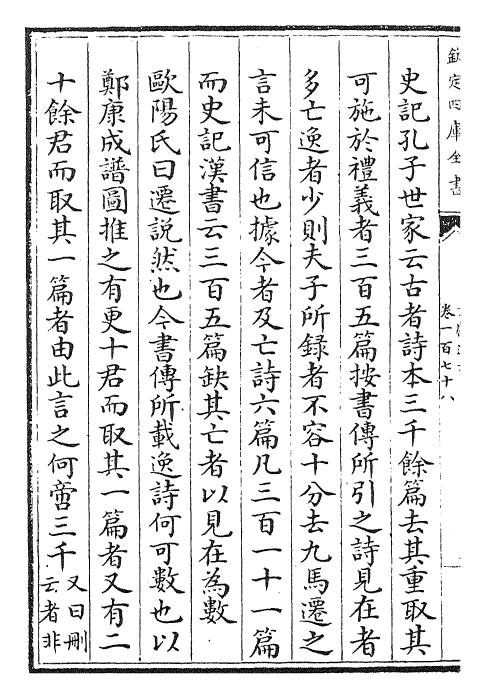 欽定四庫全書
卷一百七十八
史記孔子世家云古者詩本三千餘篇去其重取其
可施於禮義者三百五篇按書傳所引之詩見在者
多亡逸者少則夫子所錄者不容十分去九馬遷之
言未可信也據今者及亡詩六篇凡三百一十一篇
而史記漢書云三百五篇缺其亡者以見在為數
歐陽氏曰遷説然也今書傳所載逸詩何可數也以
鄭康成譜圖推之有更十君而取其一篇者又有二
十餘君而取其一篇者由此言之何啻三千又曰刪
云者非